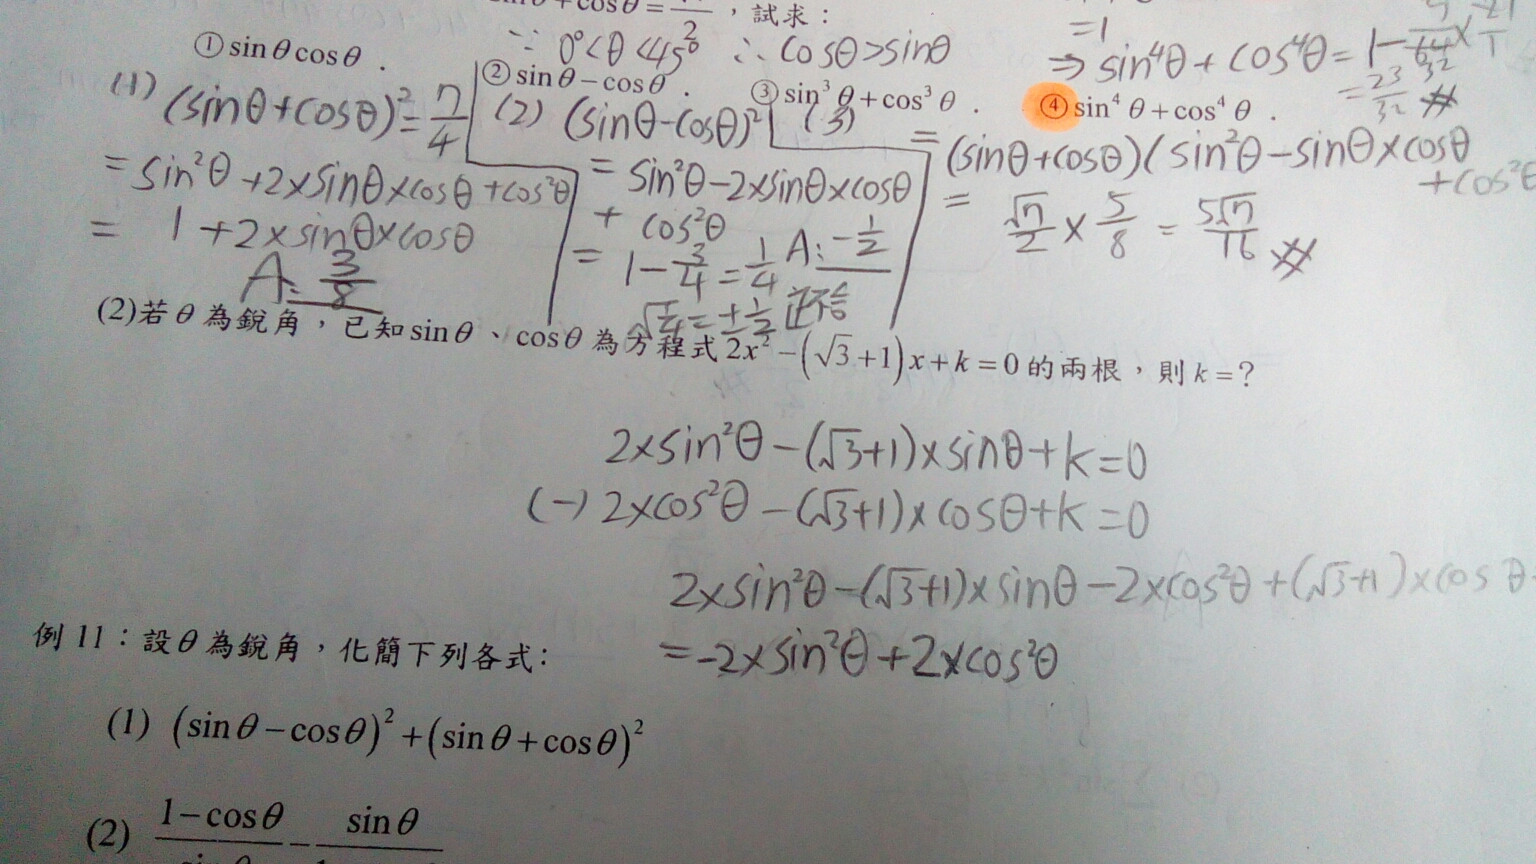 sinθ+cosθ= 2 ，試求：
∵ 0°<θ<45° ∴ cosθ>sinθ
=1
⇒ sin⁴θ + cos⁴θ = 1 -
= 23/32 #
① sinθcosθ．
② sinθ−cosθ．
③ sin³θ+cos³θ．
④ sin⁴θ+cos⁴θ．
(1) (sinθ+cosθ)² = 7/4
= sin²θ+2×sinθ×cosθ+cos²θ
= 1+2×sinθ×cosθ
A: 3/8
(2) (sinθ-cosθ)²
= sin²θ-2×sinθ×cosθ
+ cos²θ
= 1-3/4=1/4 A: -1/2
√1/4=±1/2 正不合
(3)
= (sinθ+cosθ)(sin²θ-sinθ×cosθ
+cos²θ
= √7/2 × 5/8 = 5√7/16 #
(2)若θ為銳角，已知sinθ、cosθ為方程式2x²−(√3+1)x+k=0的兩根，則k=？
2×sin²θ-(√3+1)×sinθ+k=0
(-) 2×cos²θ-(√3+1)×cosθ+k=0
2×sin²θ-(√3+1)×sinθ-2×cos²θ+(√3+1)×cosθ
=-2×sin²θ+2×cos²θ
例 11：設θ為銳角，化簡下列各式：
(1) (sinθ−cosθ)²+(sinθ+cosθ)²
(2) 1−cosθ − sinθ